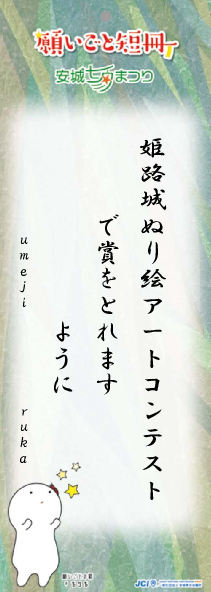 願いごと短冊
安城七夕まつり
姫路城ぬり絵アートコンテスト
で賞をとれます
ように
umeji ruka
願いごと短冊
JCI